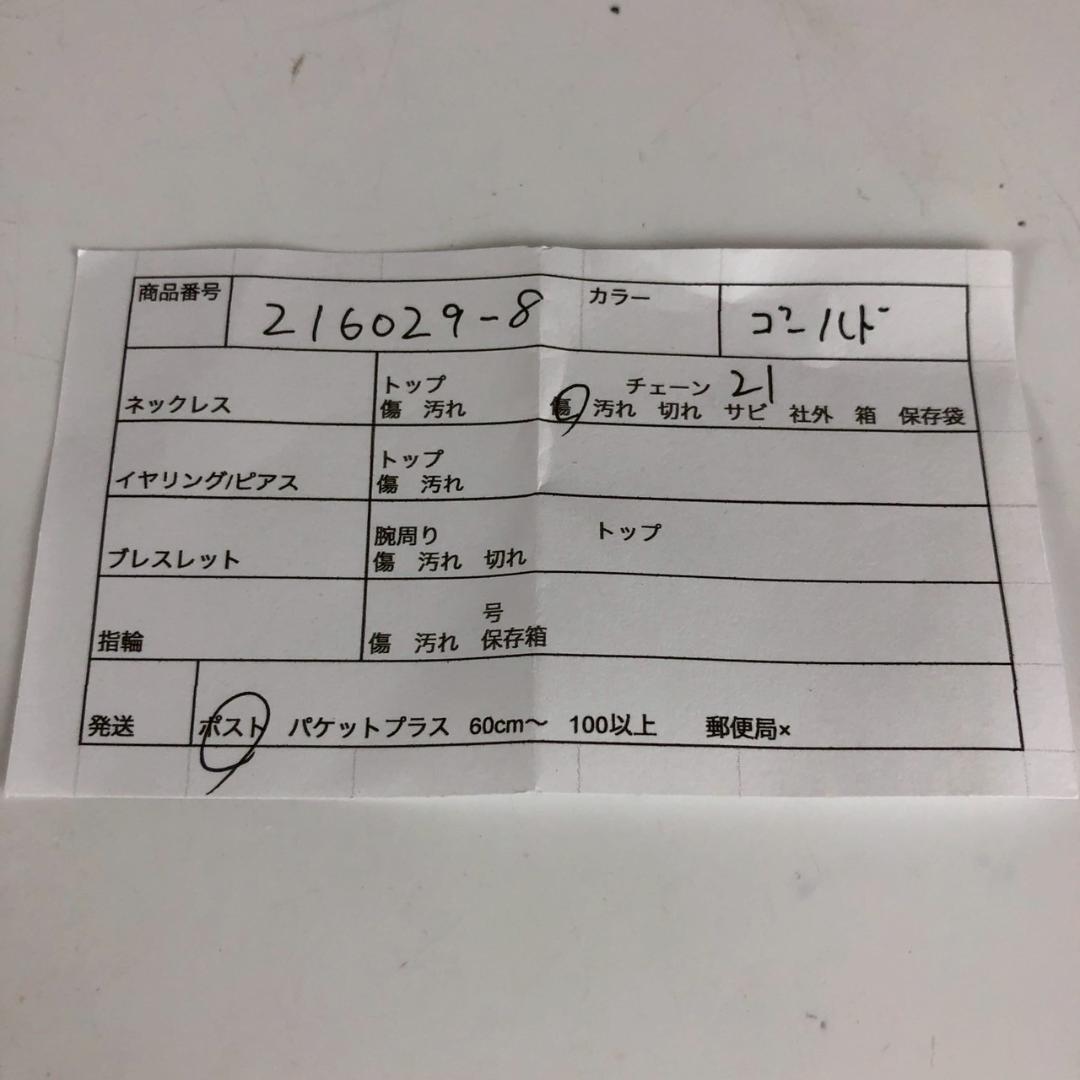 商品番号 216029-8 カラー ゴールド
ネックレス トップ チェーン 21
傷 汚れ 傷 汚れ 切れ サビ 社外 箱 保存袋
イヤリング/ピアス トップ
傷 汚れ
ブレスレット 腕周り トップ
傷 汚れ 切れ
指輪 号
傷 汚れ 保存箱
発送 ポスト パケットプラス 60cm〜 100以上 郵便局×